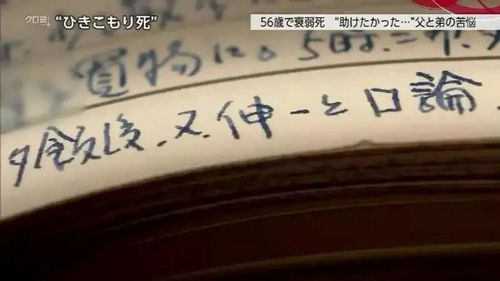 クロ現
“ひきこもり死”
56歳で衰弱死 “助けたかった…”父と弟の苦悩
買物に。5時
夕飯後、又、伸一と口論